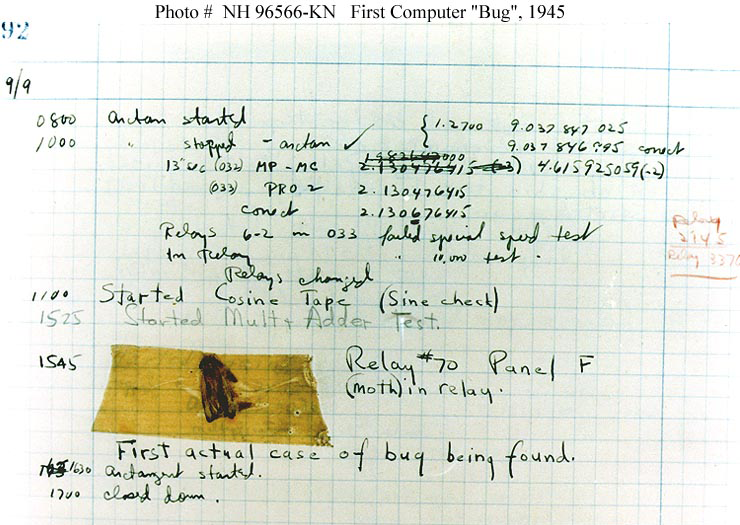 Photo # NH 96566-KN First Computer "Bug", 1945
92
9/9
0800 arctan started
1000 " stopped - arctan ✓ { 1.2700 9.037 847 025
9.037 846 995 correct
13"uc (032) MP - MC 2.130476415 (-3) 4.615925059(-2)
(033) PRO 2 2.130476415
correct 2.130676415
Relays 6-2 in 033 failed special speed test
In Relay " 10,000 test.
Relays changed
Relay
2145
Relay 3370
1100 Started Cosine Tape (Sine check)
1525 Started Mult + Adder Test.
1545 Relay #70 Panel F
(moth) in relay.
First actual case of bug being found.
1630 arctangent started.
1700 closed down.